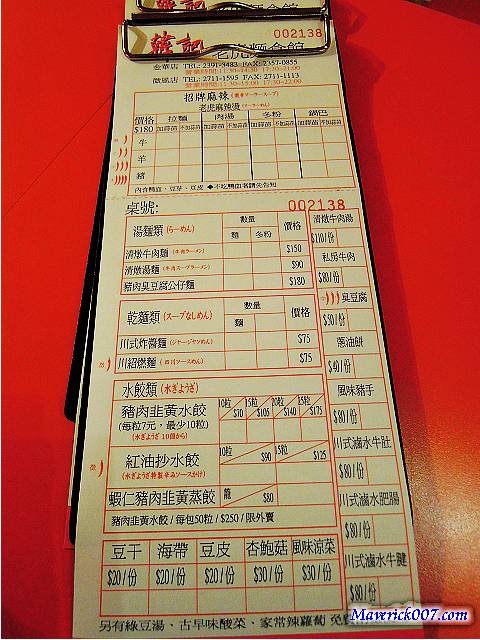 002138
韓記 老虎麵食館
金華店 TEL: 2391-3483 FAX: 2357-0855
營業時間:11:30~14:30 17:30~21:00
微風店 TEL: 2711-1595 FAX: 2711-1113
招牌麻辣
老虎麻辣湯
價格 拉麵 肉湯 冬粉 鍋巴
$180 加蒜苗 不加蒜苗 加蒜苗 不加蒜苗 加蒜苗 不加蒜苗 加蒜苗 不加蒜苗
牛
羊
豬
內含鴨血、豆芽、豆皮 ◆不吃鴨血者請先告知
桌號: 002138
湯麵類 (らーめん) 數量 價格
麵 冬粉
清燉牛肉麵 (牛肉ラーメン) $150
清燉湯麵 (牛肉スープラーメン) $90
豬肉臭豆腐公仔麵 $180
乾麵類 (スープなしめん) 數量 價格
麵
川式炸醬麵 (ジャージャンめん) $75
川紹燃麵 (四川ソースめん) $75
水餃類 (水ぎょうざ)
豬肉韭黃水餃 10粒 $70 15粒 $105 20粒 $140 25粒 $175
(每粒7元，最少10粒)
(水ぎょうざ 10個から)
紅油抄水餃 10粒 $90 15粒 $125
(水ぎょうざ特製辛みソースかけ)
蝦仁豬肉韭黃蒸餃 籠 $80
豬肉韭黃水餃 / 每包50粒 / $250 / 限外賣
清燉牛肉湯
$110/份
私房牛肉
$80/份
臭豆腐
$50/份
蔥油餅
$40/份
風味豬手
$80/份
川式滷水牛肚
$80/份
川式滷水肥腸
$80/份
川式滷水牛腱
$80/份
豆干 海帶 豆皮 杏鮑菇 風味涼菜
$20/份 $20/份 $20/份 $30/份 $30/份
另有綠豆湯、古早味酸菜、家常辣蘿蔔 免費
Maverick007.com